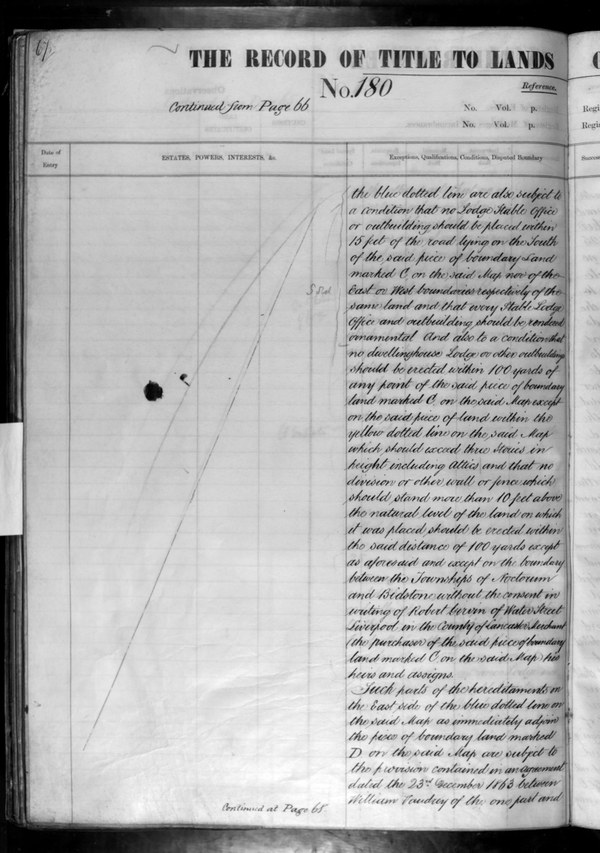 67.
THE RECORD OF TITLE TO LANDS
No. 180
Reference.
Continued from Page 66
No. Vol. p.
No. Vol. p.
Regi
Regi
Date of
Entry
ESTATES, POWERS, INTERESTS, &c.
Exceptions, Qualifications, Conditions, Disputed Boundary
the blue dotted line are also subject to
a condition that no Lodge Stable Office
or outbuilding should be placed within
15 feet of the road lying on the South
of the said piece of boundary land
marked C on the said Map nor of the
East or West boundaries respectively of the
same land and that every Stable Lodge
Office and outbuilding should be rendered
ornamental And also to a condition that
no dwellinghouse Lodge or other outbuilding
should be erected within 100 yards of
any point of the said piece of boundary
land marked C on the said Map except
on the said piece of land within the
yellow dotted line on the said Map
which should exceed three Stories in
height including Attics and that no
division or other wall or fence which
should stand more than 10 feet above
the natural level of the land on which
it was placed should be erected within
the said distance of 100 yards except
as aforesaid and except on the boundary
between the Townships of Noctorum
and Bidston without the consent in
writing of Robert of Water Street
Liverpool in the County of Lancaster Merchant
(the purchaser of the said piece of boundary
land marked C on the said Map) his
heirs and assigns.
Such parts of the hereditaments on
the East side of the blue dotted line on
the said Map as immediately adjoin
the piece of boundary land marked
D on the said Map are subject to
the provision contained in an agreement
dated the 23rd December 1863 between
William of the one part and
Continued at Page 68